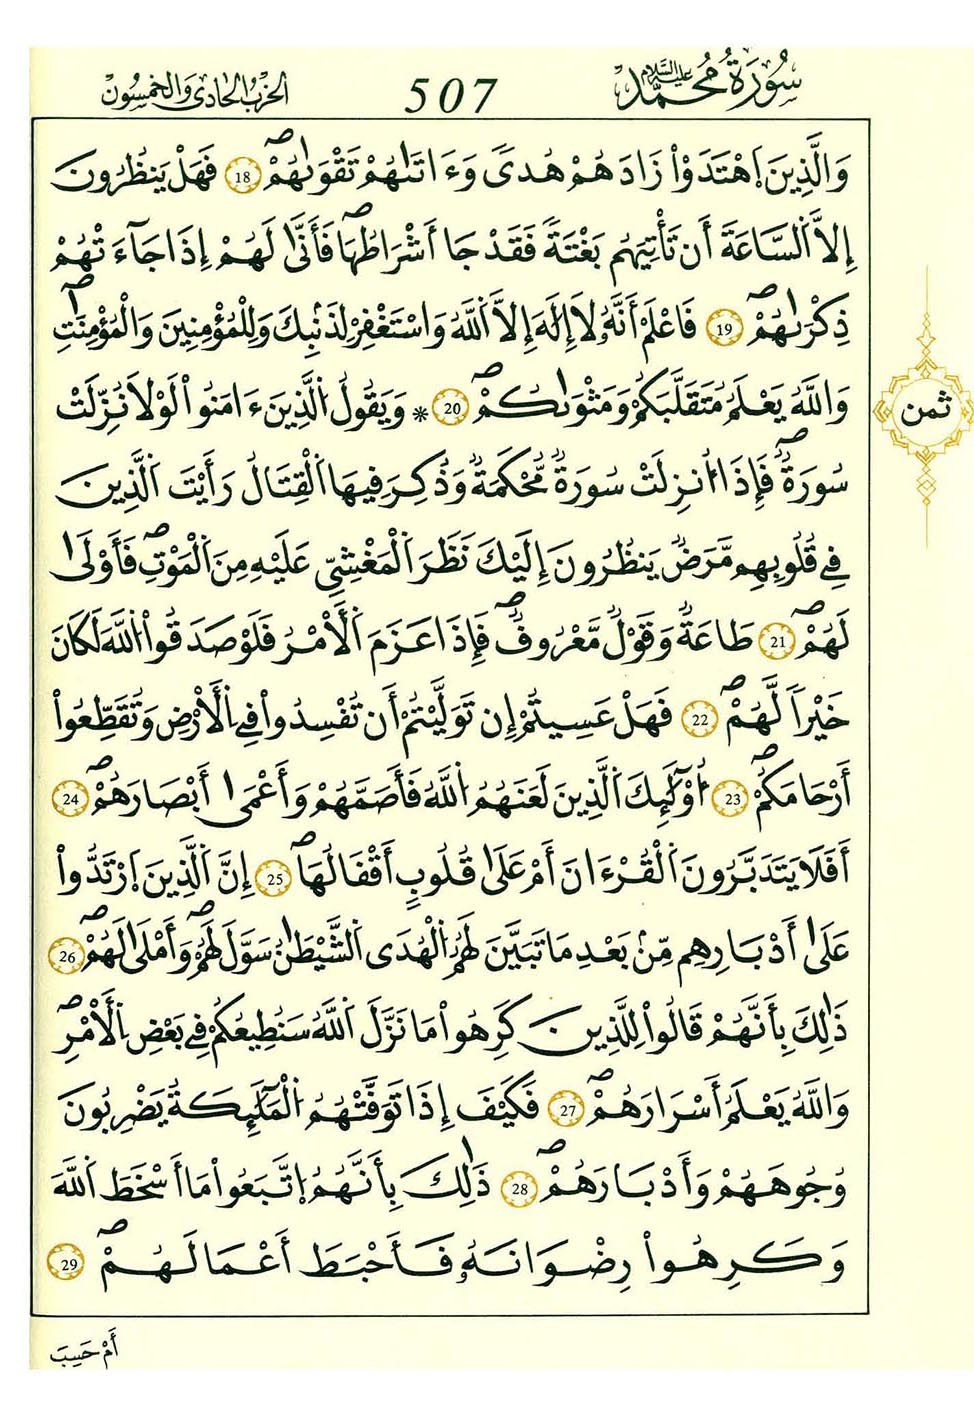 سُورَةُ مُحَمَّد عليه السلام
507
الحزب الحادي والخمسون
وَالَّذِينَ اَهْتَدَوْاْ زَادَهُمْ هُدىً وَءَاتَىٰهُمْ تَقْوَىٰهُمْۖ 18 فَهَلْ يَنظُرُونَ
إِلاَّ اَلسَّاعَةَ أَن تَأْتِيَهُم بَغْتَةً فَقَدْ جَا أَشْرَاطُهَاۖ فَأَنَّىٰ لَهُمْ إِذَا جَآءَتْهُمْ
ذِكْرَىٰهُمْۖ 19 فَاعْلَمَ اَنَّهُۥ لَا إِلَٰهَ إِلاَّ اَللَّهُ وَاسْتَغْفِرْ لِذَنۢبِكَ وَلِلْمُؤْمِنِينَ وَالْمُؤْمِنَٰتِۖ
وَاللَّهُ يَعْلَمُ مُتَقَلَّبَكُمْ وَمَثْوَىٰكُمْۖ 20 * وَيَقُولُ اُلَّذِينَ ءَامَنُواْ لَوْلَا نُزِّلَتْ
سُورَةٞۖ فَإِذَا أُنزِلَتْ سُورَةٞ مُّحْكَمَةٞ وَذُكِرَ فِيهَا اَلْقِتَالُ رَأَيْتَ اَلَّذِينَ
فِي قُلُوبِهِم مَّرَضٞ يَنظُرُونَ إِلَيْكَ نَظَرَ اَلْمَغْشِيِّ عَلَيْهِ مِنَ اَلْمَوْتِۖ فَأَوْلَىٰ
لَهُمْۖ 21 طَاعَةٞ وَقَوْلٞ مَّعْرُوفٞۖ فَإِذَا عَزَمَ اَلْأَمْرُ فَلَوْ صَدَقُواْ اُللَّهَ لَكَانَ
خَيْراً لَّهُمْۖ 22 فَهَلْ عَسِيتُمُ إِن تَوَلَّيْتُمُ أَن تُفْسِدُواْ فِي اِلْأَرْضِ وَتُقَطِّعُواْ
أَرْحَامَكُمْۖ 23 أُوْلَٰٓئِكَ اَلَّذِينَ لَعَنَهُمُ اُللَّهُ فَأَصَمَّهُمْ وَأَعْمَىٰ أَبْصَارَهُمْۖ 24
أَفَلَا يَتَدَبَّرُونَ اَلْقُرْءَانَ أَمْ عَلَىٰ قُلُوبٍ أَقْفَالُهَاۖ 25 إِنَّ اَلَّذِينَ اِرْتَدُّواْ
عَلَىٰ أَدْبَارِهِم مِّنۢ بَعْدِ مَا تَبَيَّنَ لَهُمُ اُلْهُدَى اَلشَّيْطَٰنُ سَوَّلَ لَهُمْۖ وَأَمْلَىٰ لَهُمْۖ 26
ذَٰلِكَ بِأَنَّهُمْ قَالُواْ لِلَّذِينَ كَرِهُواْ مَا نَزَّلَ اَللَّهُ سَنُطِيعُكُمْ فِي بَعْضِ اِلْأَمْرِۖ
وَاللَّهُ يَعْلَمُ أَسْرَارَهُمْۖ 27 فَكَيْفَ إِذَا تَوَفَّتْهُمُ اُلْمَلَٰٓئِكَةُ يَضْرِبُونَ
وُجُوهَهُمْ وَأَدْبَارَهُمْۖ 28 ذَٰلِكَ بِأَنَّهُمُ اِتَّبَعُواْ مَا أَسْخَطَ اَللَّهَ
وَكَرِهُواْ رِضْوَانَهُۥ فَأَحْبَطَ أَعْمَالَهُمْۖ 29
ثمن
أَمْ حَسِبَ